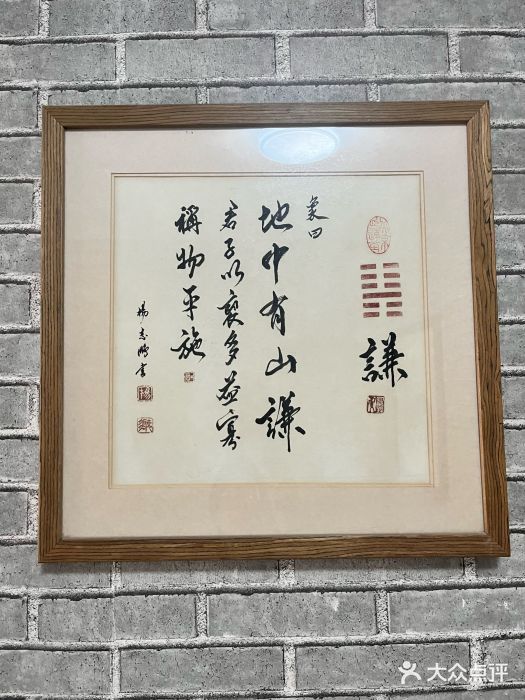 謙
象曰
地中有山謙
君子以裒多益寡
稱物平施
楊志鵬書
大众点评